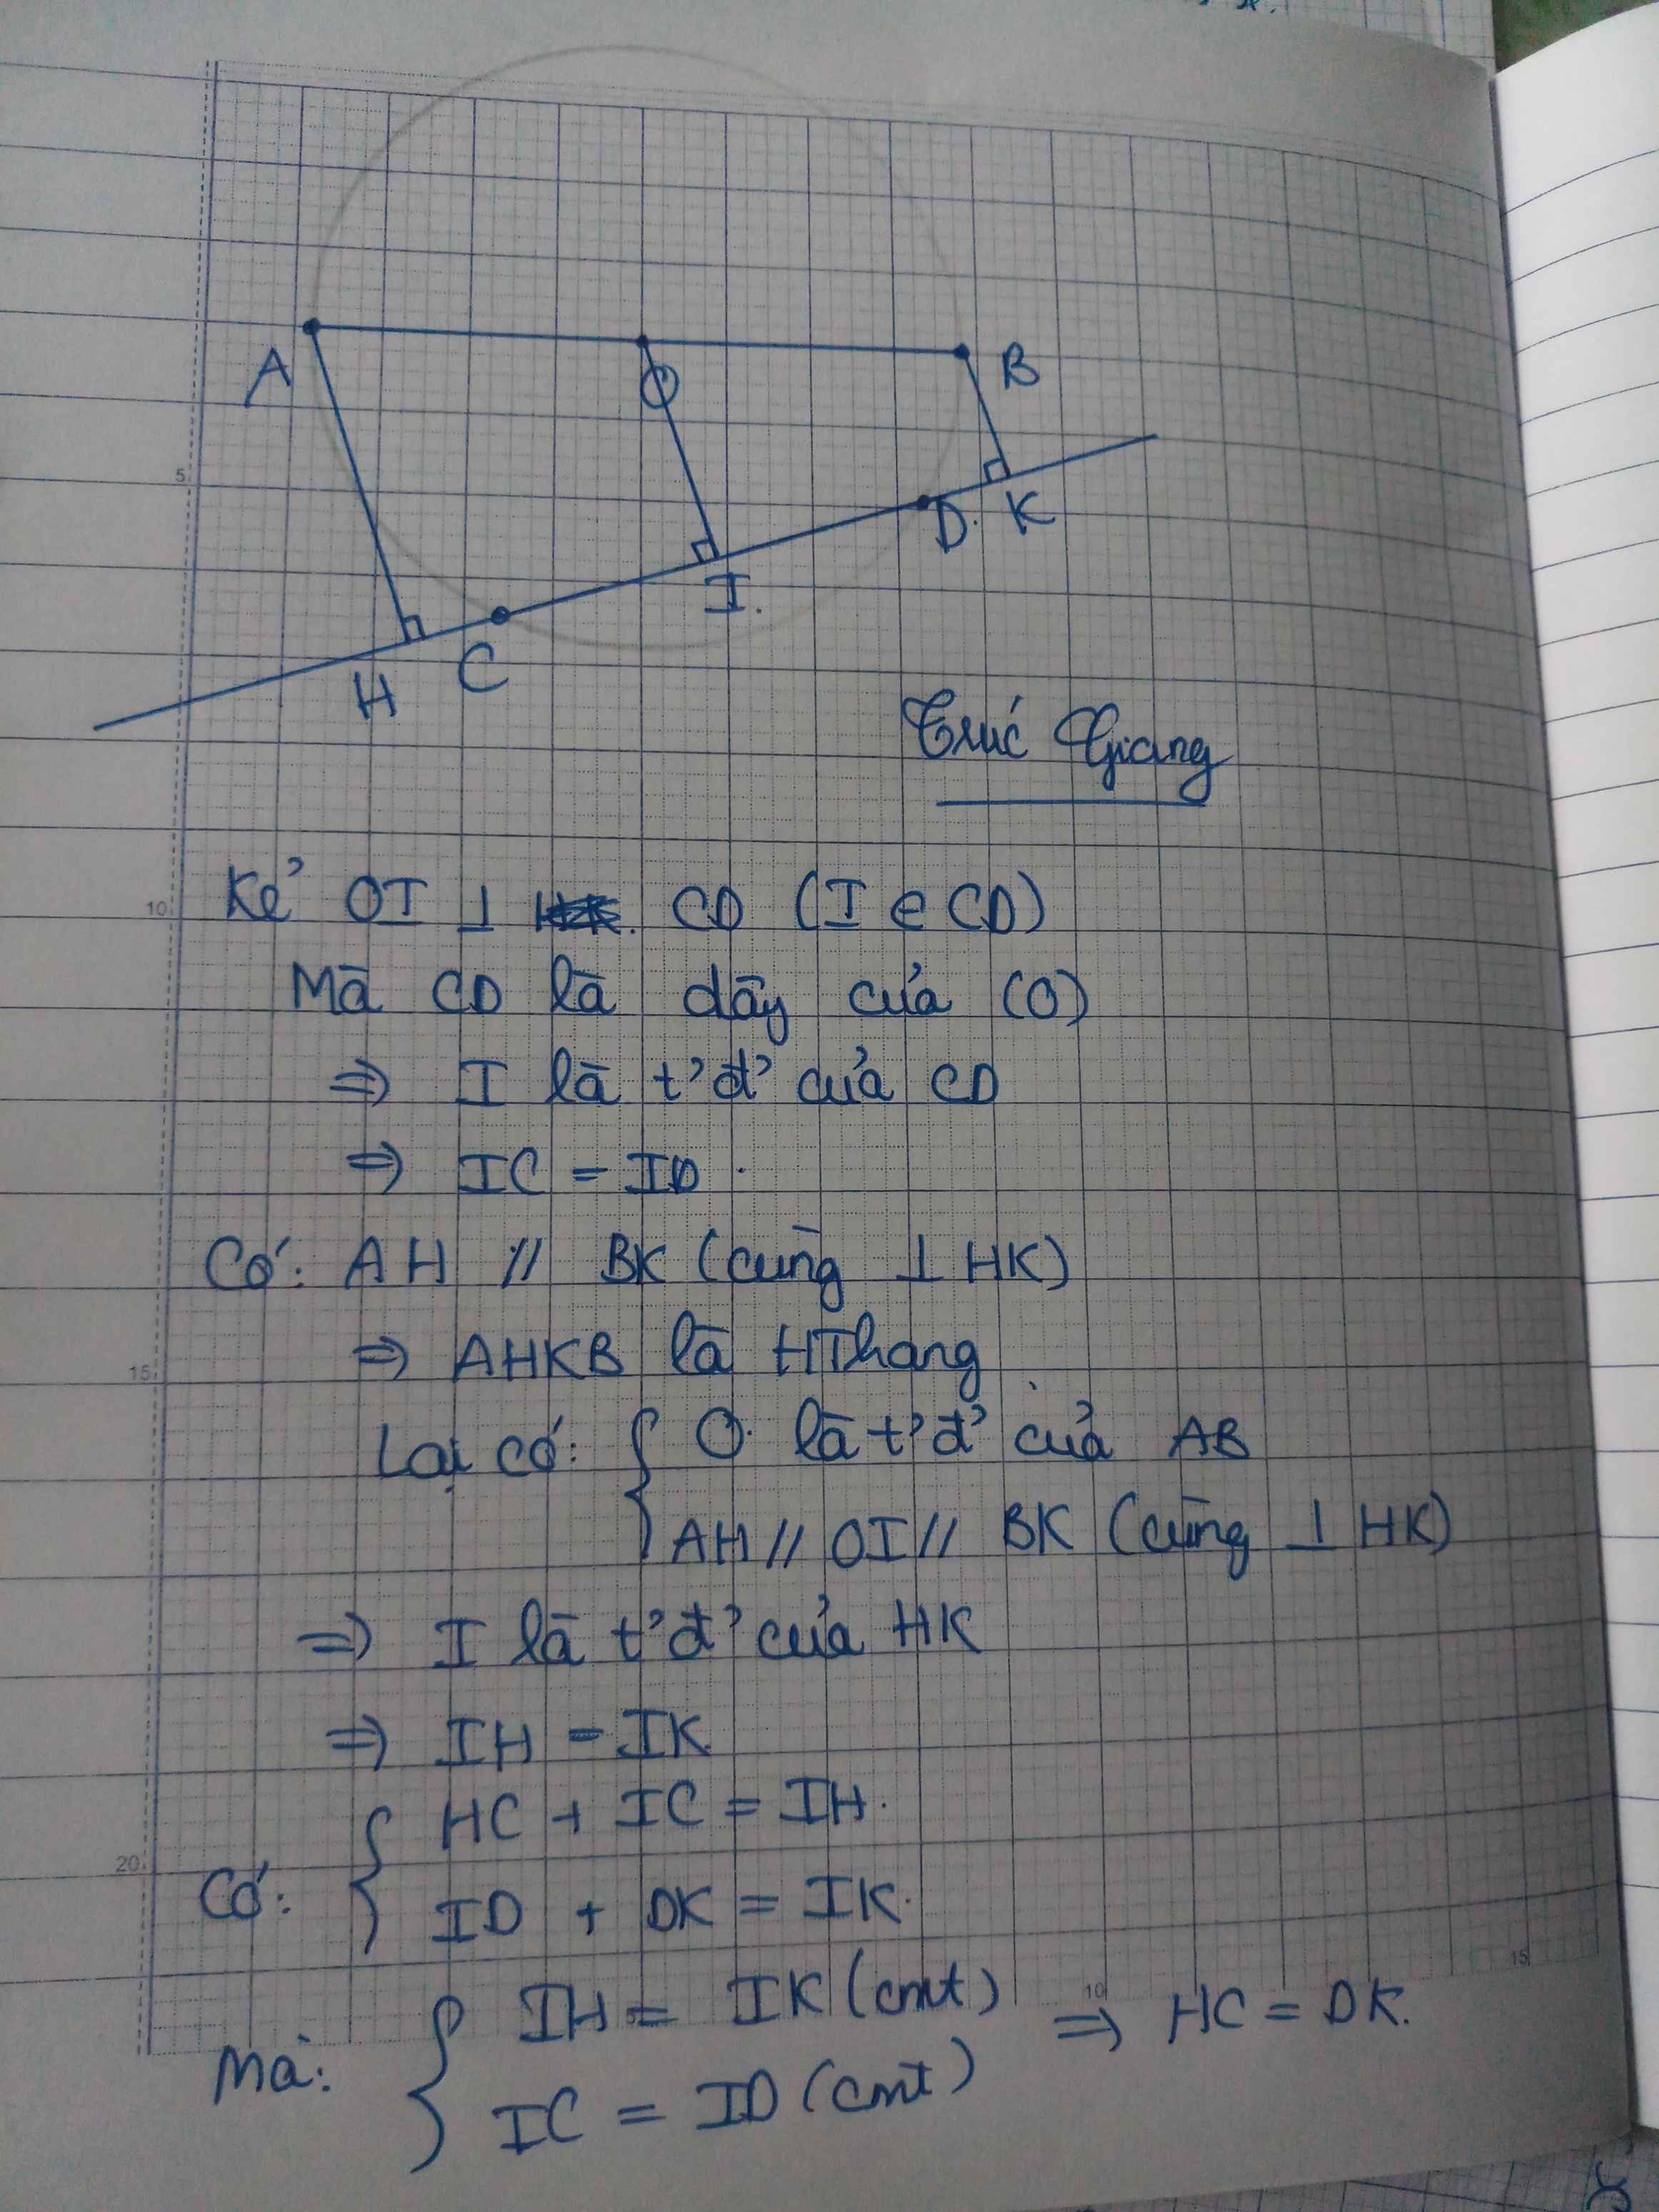 A
O
B
5
D. K
I.
H C
Trúc Giang
10
Kẻ OI ⊥ CD (I ∈ CD)
Mà CD là dây của (O)
⇒ I là t'đ' của CD
⇒ IC = ID.
Có: AH // BK (cùng ⊥ HK)
15
⇒ AHKB là HThang
Lại có: { O là t'đ' của AB
AH // OI // BK (cùng ⊥ HK)
⇒ I là t'đ' của HK
⇒ IH = IK
20
Có: { HC + IC = IH.
ID + DK = IK.
15
10
Mà: { IH = IK (cmt) ⇒ HC = DK.
IC = ID (cmt)